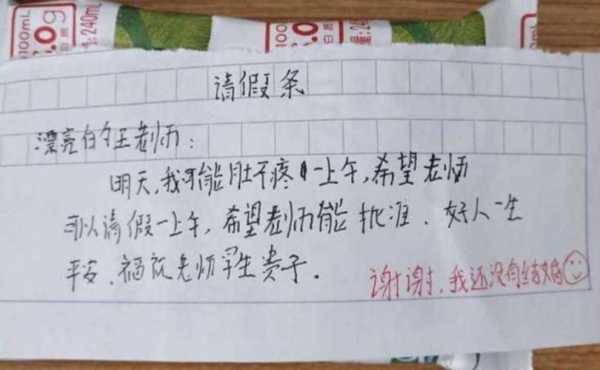 00mL
.0g
240mL
请假条
漂亮的王老师:
明天,我可能肚子疼一上午,希望老师
可以请假一上午,希望老师能批准、好人一生
平安、福祝老师早生贵子.
谢谢,我还没有结婚